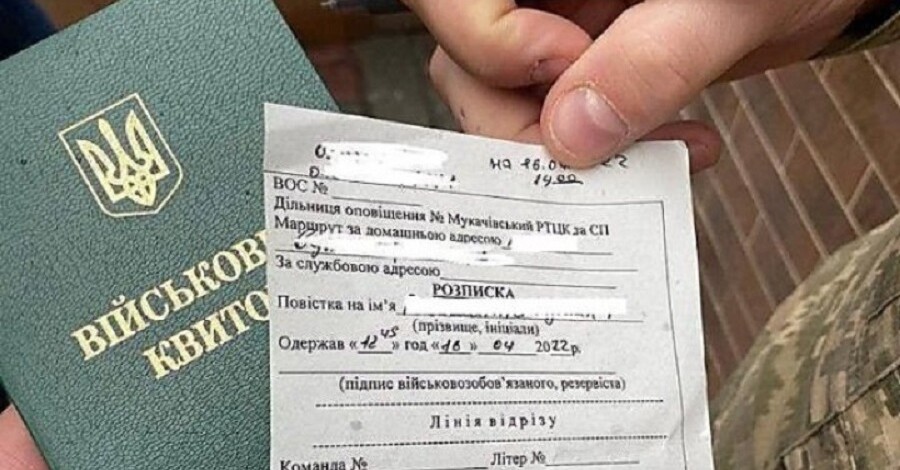 ВІЙСЬКОВ
КВИТО
на 16.0 22
14.00
ВОС №
Дільниця оповіщення № Мукачівський РТЦК да СП
Маршрут за домашньою адресою
За службовою адресою
РОЗПИСКА
Повістка на ім'я
(прізвище, ініціали)
Одержав «12 45» год «16» 04 2022р.
(підпис військовозобов'язаного, резервіста)
Лінія відрізу
Команда № Літер №